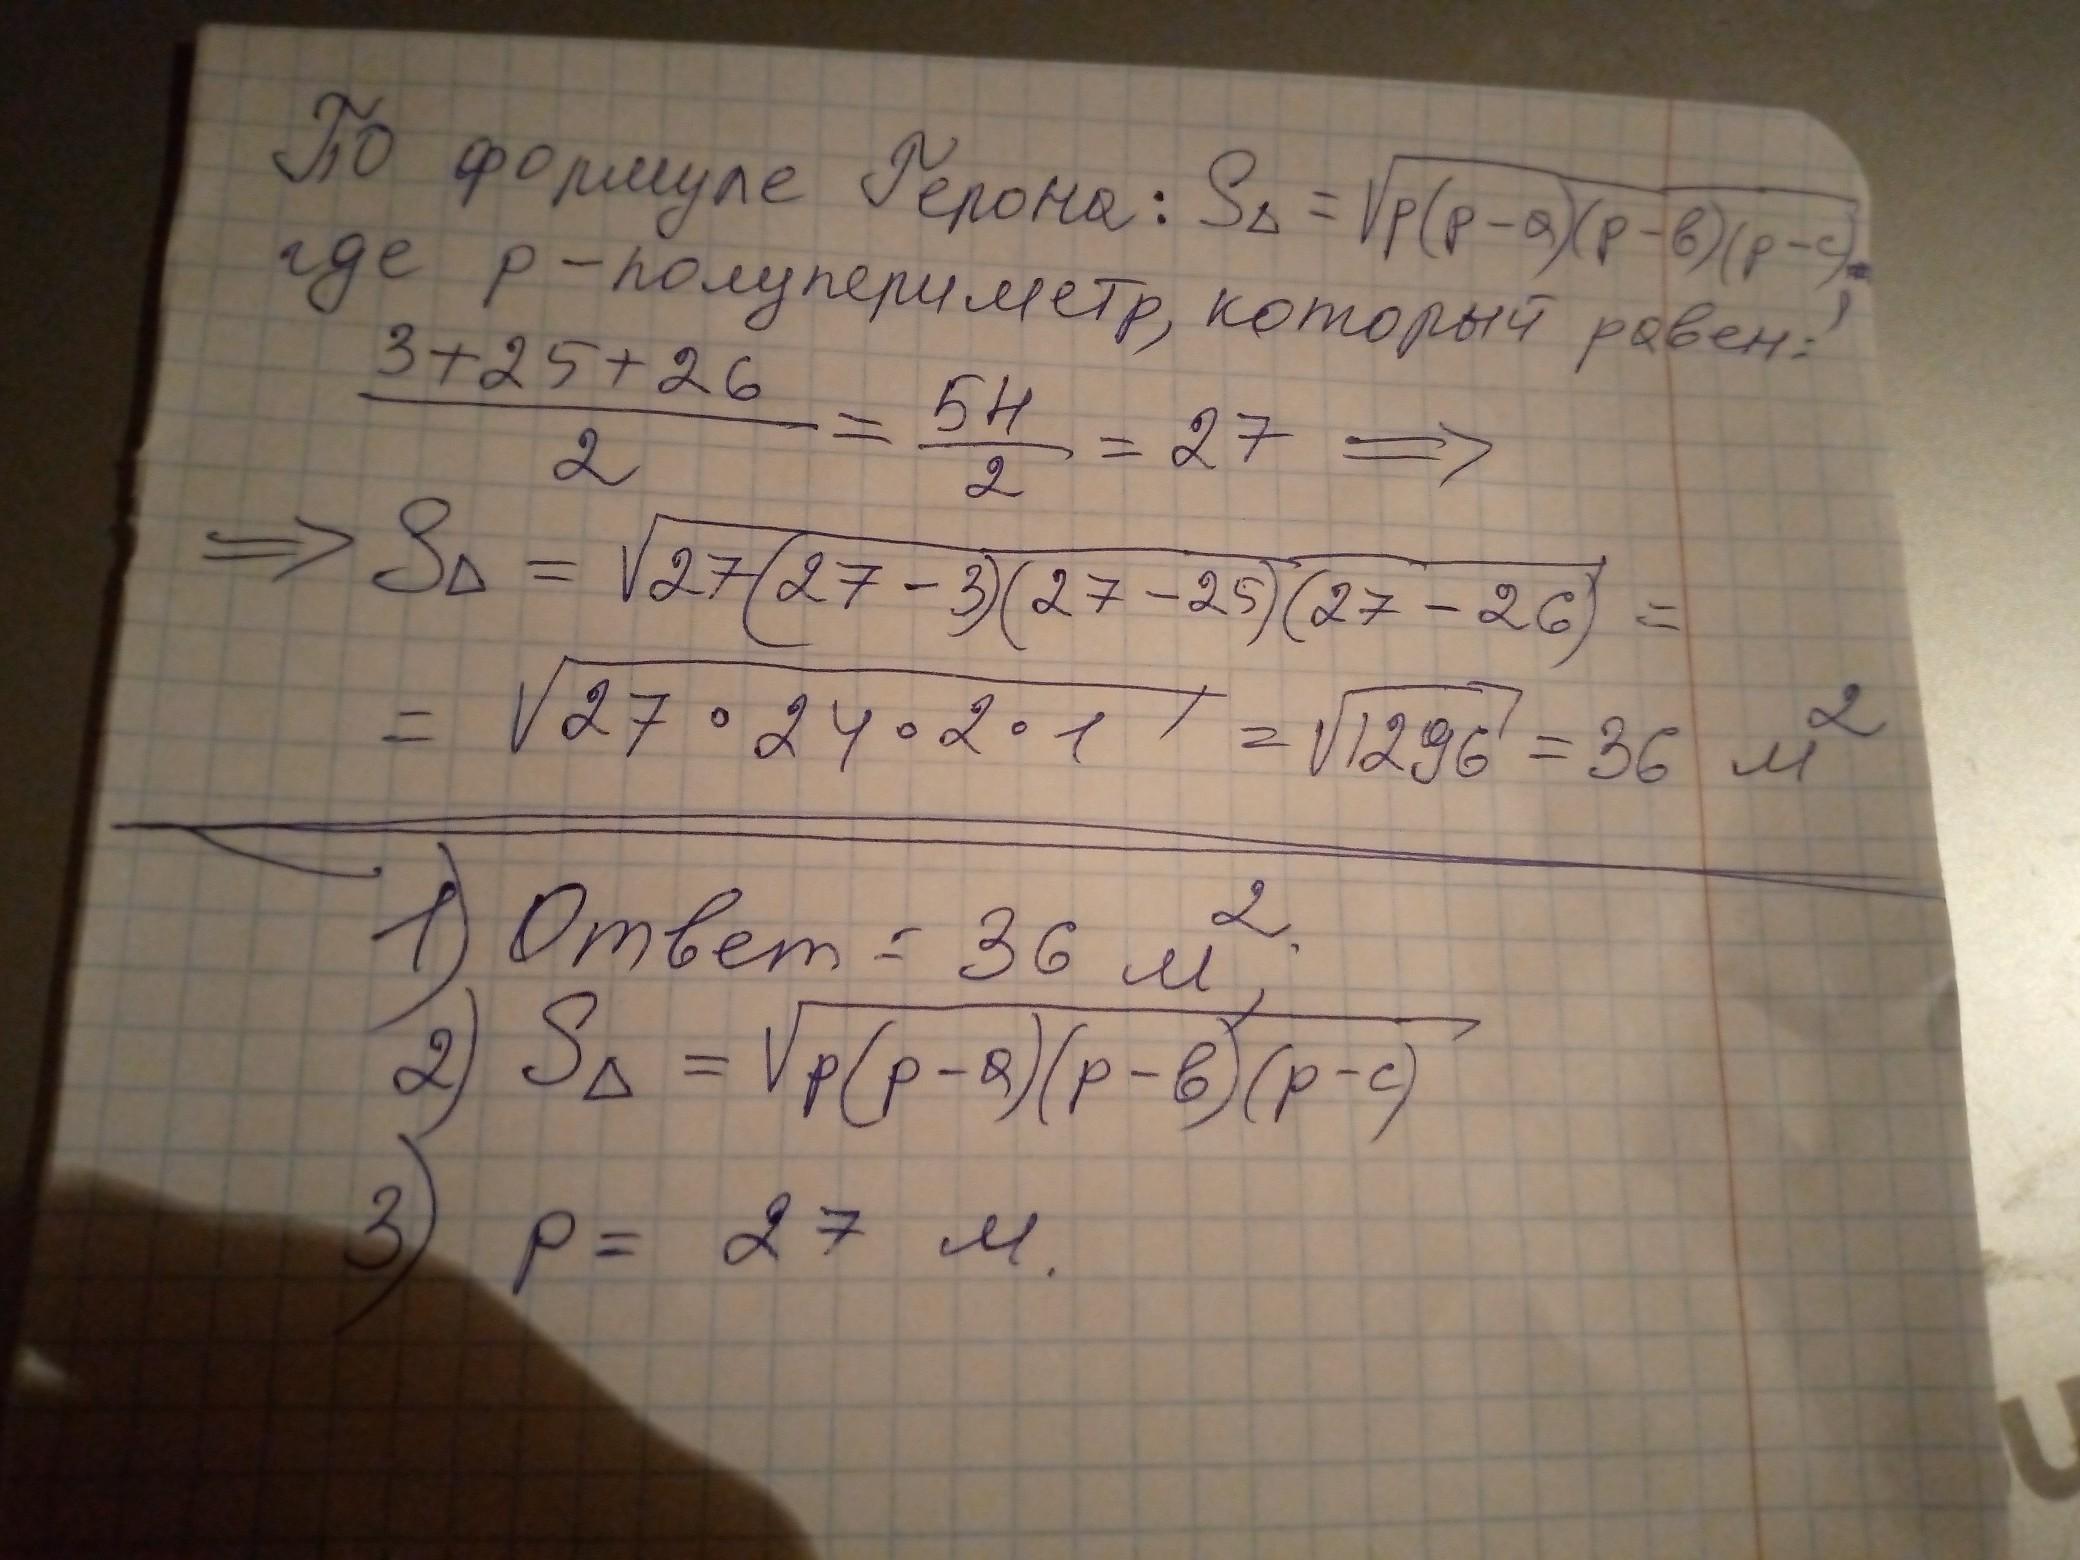 По формуле Герона: S△ = √p(p-a)(p-в)(p-c),
где p - полупериметр, который равен:
3+25+26/2 = 54/2 = 27 ⟹
⟹ S△ = √27(27-3)(27-25)(27-26) =
= √27·24·2·1 = √1296 = 36 м²
1) Ответ = 36 м²;
2) S△ = √p(p-a)(p-в)(p-c)
3) p = 27 м.